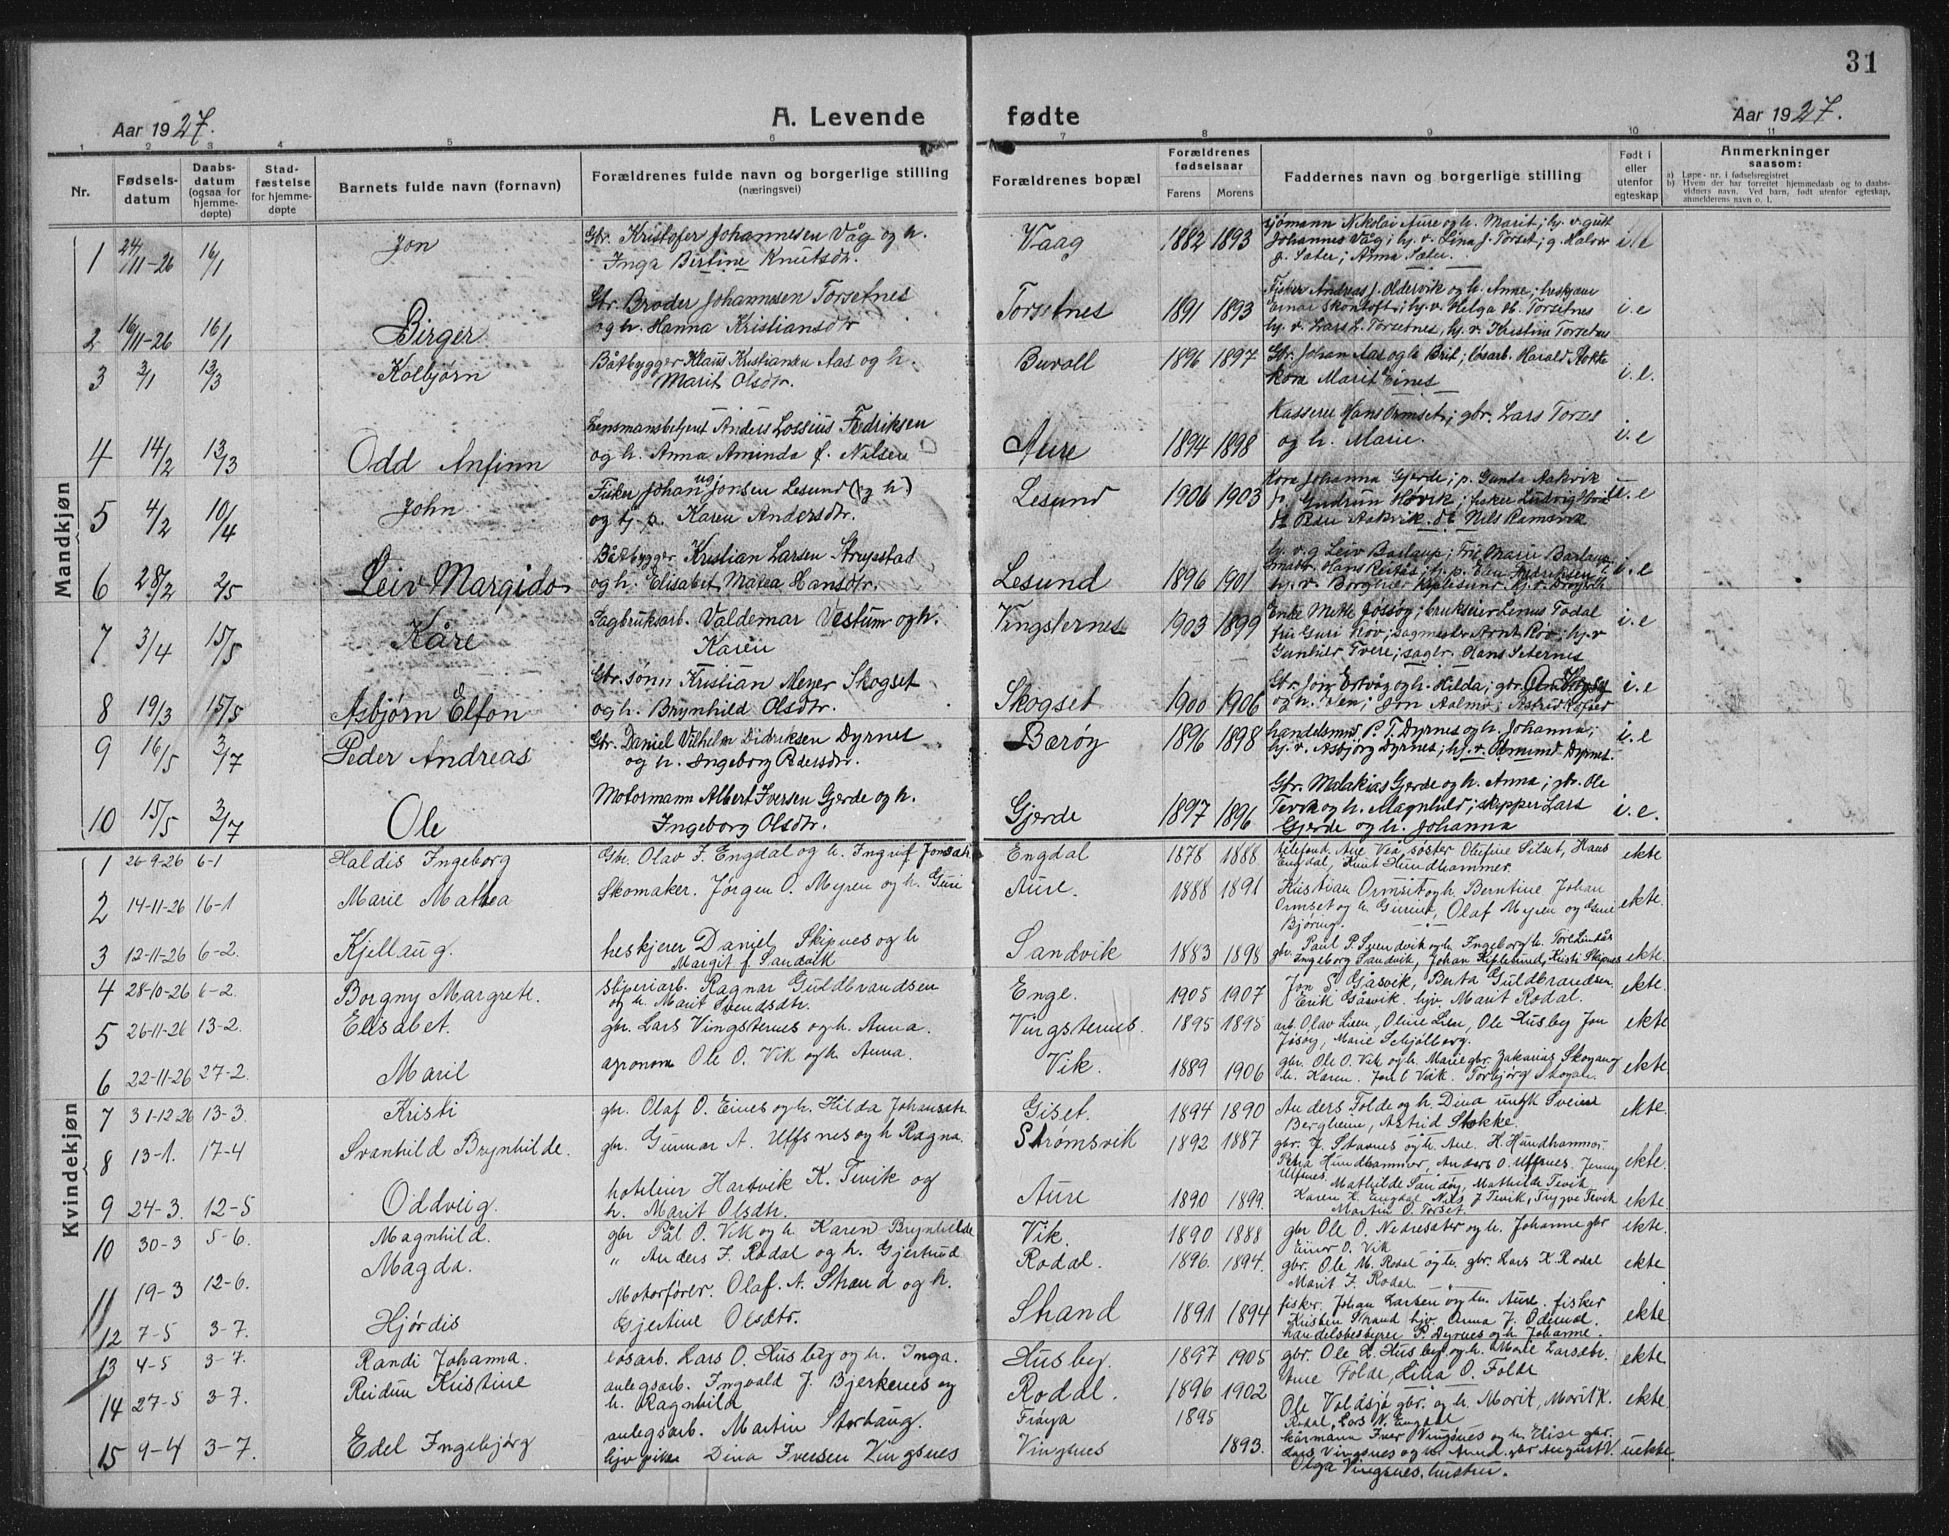 31
Aar 1927. A. Levende fødte Aar 1927.
1 2 3 4 5 6 7 8 9 10 11
Nr. Fødselsdatum Daabsdatum (ogsaa for hjemmedøpte) Stadfæstelse for hjemmedøpte Barnets fulde navn (fornavn) Forældrenes fulde navn og borgerlige stilling (næringsvei) Forældrenes bopæl Forældrenes fødselsaar Farens Morens Faddernes navn og borgerlige stilling Født i eller utenfor egteskap Anmerkninger saasom:
a) Løpe-nr. i fødselsregistret
b) Hvem der har forrettet hjemmedaab og to daabsvidners navn. Ved barn, født utenfor egteskap, anmelderens navn o. l.
Mandkjøn
1 24/11-26 16/1 Jon Gbr. Kristofer Johannesen Våg og h. Inga Bertine Knutsdr. Vaag 1882 1893 sjømann Nikolai Aure og h. Marit; hj. v. gutt
Johannes Våg; hj. v. Lina J. Torset; g. Halvor
J. Sæter; Anna Sæter. i. e
2 16/11-26 16/1 Birger Gbr. Broder Johannesen Torsetnes og h. Hanna Kristiansdtr Torsetnes 1891 1893 Fisker Andreas J. Oldervik og h. Anne; heskjærer
Einar Skontoft; hj. v. Helga Torsetnes
hj. v. Lars L. Torsetnes; hj. v. Kristine Torsetnes i. e
3 3/1 13/3 Kolbjørn Båtbygger Klaus Kristiansen Aas og h. Marit Olsdtr. Buvoll 1896 1897 Gbr. Johan Aas og h. Brit; løsarb. Harald
Marit Eines i. e.
4 14/2 13/3 Odd Anfinn Lensmansbetjent Anders Lossius Fredriksen og h. Anna Aminda f. Nilsen Aure 1894 1898 Kasserer Hans Ormset; gbr. Lars Torset
og h. Marie. i. e
5 4/2 10/4 John Fisker Johan Jonsen Lesund (og h) ug og hj. p. Karen Andersdtr. Lesund 1906 1903 Johanna Gjerde; p. Gunda Aakvik
Gudrun Høvik; fisker Ludvig
Peder Aakvik. Nils Ramsvik i. e
6 28/2 2/5 Leiv Margido Båtbygger Kristian Larsen Strupstad og h. Elisabet Marea Hansdtr. Lesund 1896 1901 hj. v. g Leiv Barlaup; Fru Marie Barlaup
i. e
7 3/4 15/5 Kåre Sagbruksarb. Valdemar Vestum og h. Karen Vingsternes 1903 1899 Enke Mette Jøssøy; brukseier Lenus Todal
fru Guri Røv; sagmester Arnt Røv; hj. v
Gunhild Tvere; sagbr. Hans Seternes i. e
8 19/3 15/5 Asbjørn Elfon Gbr. sønn Kristian Meyer Skogset og h. Brynhild Olsdtr. Skogset 1900 1906 Gbr. Jon Ertvåg og h. Hilda; gbr.
og h. Jon Aalmo; Astrid i. e
9 16/5 3/7 Peder Andreas Gbr. Daniel Vilhelm Didriksen Dyrnes og h. Ingeborg Pedersdtr. Barøy 1896 1898 handelsmd P. T. Dyrnes og h. Johanna;
hj. v. Asbjørg Dyrnes; hj. v. Osmund Dyrnes i. e
10 15/5 3/7 Ole Motormann Albert Iversen Gjerde og h. Ingeborg Olsdtr. Gjerde 1897 1896 Gbr. Malakias Gjerde og h. Anna; gbr. Ole
Tevik og h. Magnhild; skipper Lars
Gjerde og h. Johanna i. e.
Kvindekjøn
1 26-9-26 6-1 Haldis Ingeborg Gbr. Olav J. Engdal og h. Ingrif Jonsdtr Engdal 1878 1888 telefond. Ane Vea, søster Olufine Silset, Hans
Engdal, Knut Hundhammer. ekte
2 14-11-26 16-1 Marie Mathea Skomaker. Jørgen O. Myren og h. Guri Aure. 1888 1891 Kristian Ormset og h. Berntine, Johan
Ormset og h. Gurine, Olaf Myren og Guri
Bjøring. ekte.
3 12-11-26 6-2. Kjellaug. heskjerer Daniel Skipnes og h Margit f. Sandvik Sandvik 1883 1898 gbr. Paul P. Svendvik og h. Ingeborg h. Tore Lindås
Ingeborg Sandvik, Johan Kiplesund, Kristi Skipnes ekte.
4 28-10-26 6-2. Borgny Margrete. Sliperiarb. Ragnar Guldbrandsen og h. Marit Svendsdtr. Enge. 1905 1907 Jon S. Gåsvik, Berta Guldbrandsen
Erik Gåsvik. hjv. Marit Rodal. ekte.
5 26-11-26 13-2. Elisabet. gbr. Lars Vingsternes og h. Anna. Vingsternes. 1895 1895 arb. Olav Lien, Oline Lien, Ole Husby Jon
Jøsøy, Marie Schjølberg. ekte
6 22-11-26 27-2. Maril agronom Ole O. Vik og h. Anna. Vik. 1889 1906 gbr. Ole O. Vik og h. Marie gbr. Zakarias Skogang
h. Karen. Jon O Vik. Torbjørg ekte.
7 31-12-26 13-3. Kristi gbr. Olaf O. Eines og h. Hilda Johansdtr. Giset. 1894 1890 Anders Folde og h. Dina ungk Svein
Berglien, Astrid Stokke. ekte.
8 13-1. 17-4 Svanhild Brynhilde. gbr. Gunnar A. Ulfsnes og h Ragna. Strømsvik 1892 1887 gbr. J. Stavnes og h. Ane. H. Hundhammer
Petra Hundhammer, Anders O. Ulfsnes. Jenny
Ulfsnes. ekte.
9 24-3. 12-5 Oddveig. hotelleier Hartvik K. Tevik og h. Marit Olsdtr. Aure 1890 1899. Mathilde Sandøy, Mathilde Tevik
Karen K. Engdal Nils J Tevik, Trygve Tevik
Martin O. Torset. ekte.
10 30-3 5-6. Magnhild. gbr Pål O. Vik og h. Karen Brynhilde Vik. 1890 1888 gbr Ole O. Nedresæter og h. Johanne gbr
Einar O. Vik ekte.
11 19-3 12-6. Magda. " Anders F. Rodal og h. Gjertrud Rodal. 1896. 1894. gbr. Ole M. Rodal og h. gbr. Lars H. Rodal
Marit F. Rodal. ekte
12 7-5 3-7. Hjørdis Motorfører. Olaf. A. Strand og h. Gjertine Olsdtr. Strand 1891 1894 fisker. Johan Larsen og h. Ane. fisker
Kristen Strand hjv. Anna J. Ødemel.
handelsbestyrer P. Dyrnes og h. Johanne. ekte
13 4-5 3-7. Randi Johanna. løsarb. Lars O. Husby og h. Inga. Husby. 1897 1905 gbr. Ole L. Husby og h. Marie Larsdtr.
Ane Folde, Lilla O. Folde ekte
14 27-5 3-7. Reidun Kristine anlegsarb. Ingvald J. Bjerkenes og h. Ragnhild Rodal. 1896 1902 Ole Voldsjø gbr. og h. Marit, Marit K.
Rodal, Lars N. Engdal ekte.
15 9-4 3-7. Edel Ingebjørg anlegsarb. Martin Storhaug. Frøya 1895
hjv pike Dina Iversen Vingsnes Vingsnes 1893. kårmann Iver Vingsnes og h. Elise gbr.
Lars Vingsnes og h. Anna. gbr August V.
Olga Vingsnes, hustru. uekte.